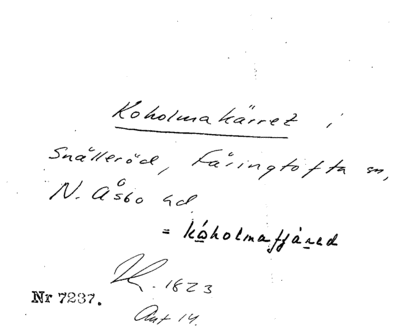 Koholmakärret i
Snälleröd, Färingtofta sn,
N. Åsbo hd
= kóholmafjáred
1823
Nr 7237.
Akt 14.